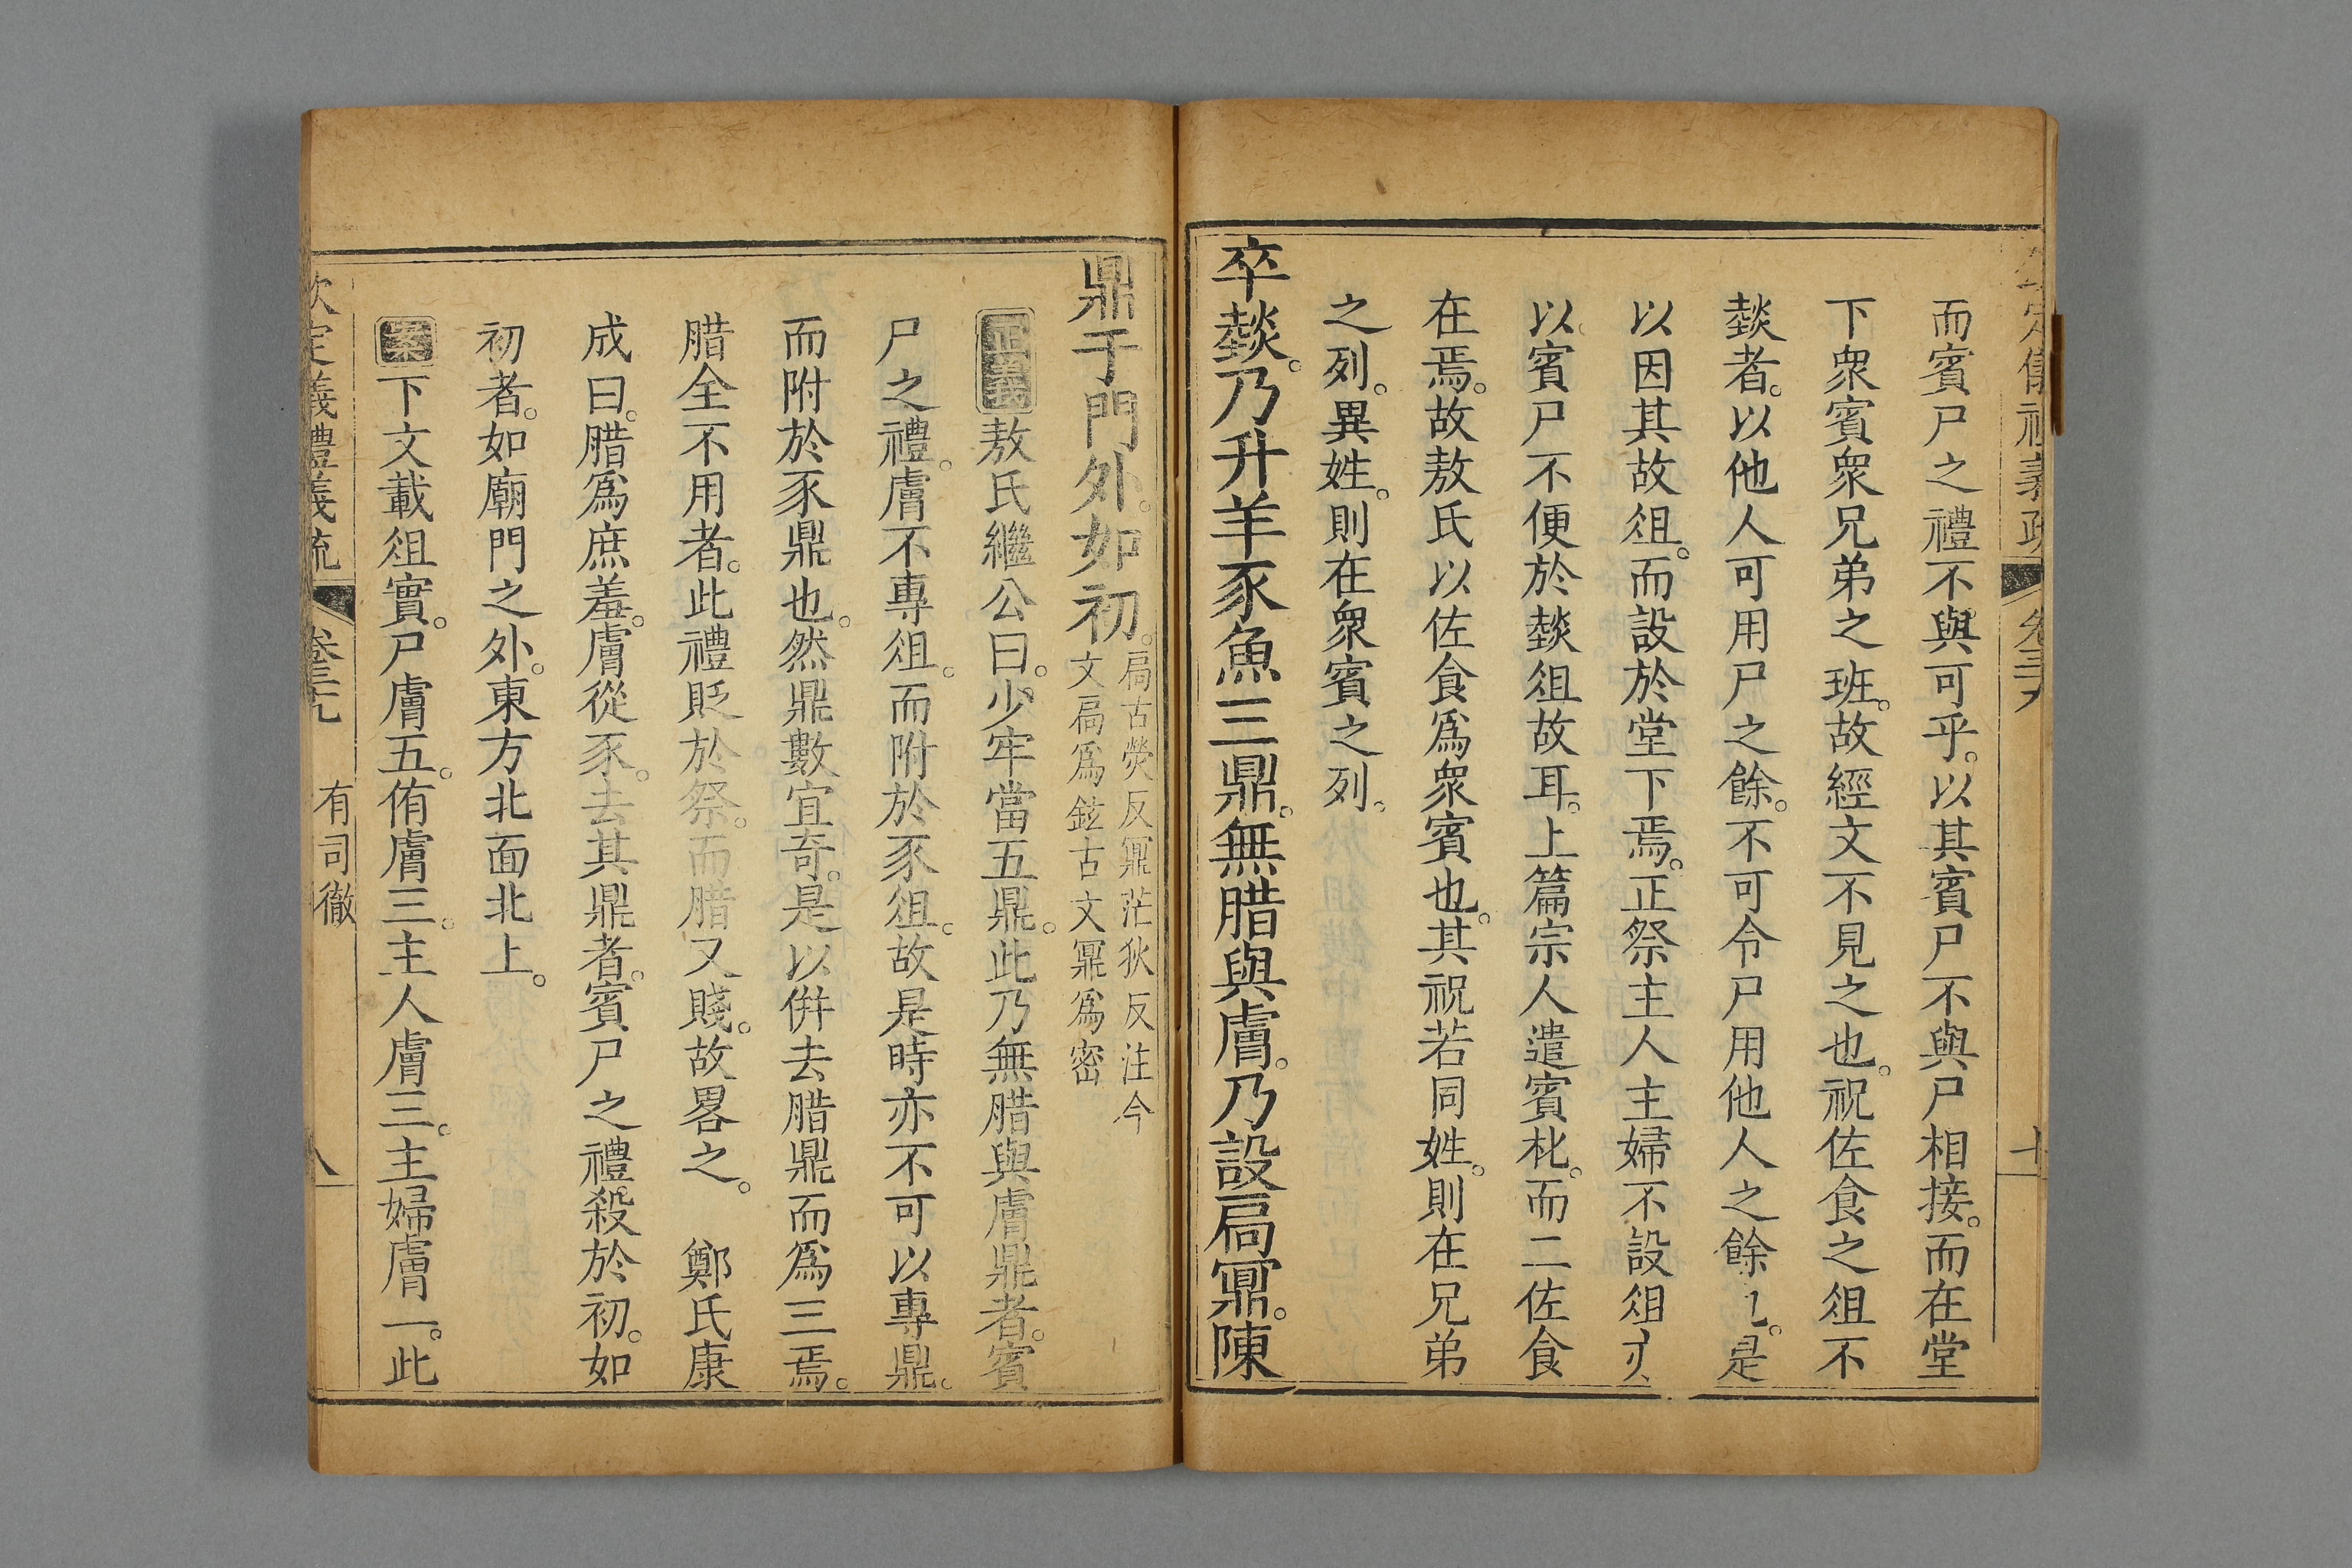 而賓尸之禮不與可乎。以其賓尸不與尸相接。而在堂
下衆賓衆兄弟之班。故經文不見之也。祝佐食之俎不
燅者。以他人可用尸之餘。不可令尸用他人之餘 是
以因其故俎。而設於堂下焉。正祭主人主婦不設俎
以賓尸不便於燅俎故耳。上篇宗人遣賓朼。而二佐食
在焉。故敖氏以佐食爲衆賓也。其祝若同姓。則在兄弟
之列。異姓。則在衆賓之列。
卒燅。乃升羊豕魚三鼎。無腊與膚。乃設扃鼏。陳
鼎于門外。如初。
扃古熒反鼏茫狄反注今
文扃爲鉉古文鼏爲密
正義敖氏繼公曰。少牢當五鼎。此乃無腊與膚鼎者。賓
尸之禮。膚不專俎。而附於豕俎。故是時亦不可以專鼎。
而附於豕鼎也。然鼎數宜奇。是以併去腊鼎而爲三焉。
腊全不用者。此禮貶於祭。而腊又賤。故畧之。 鄭氏康
成曰。腊爲庶羞。膚從豕。去其鼎者。賓尸之禮。殺於初。如
初者。如廟門之外。東方北面北上。
案下文載俎實。尸膚五。侑膚三。主人膚三。主婦膚一。此
欽定義禮義疏 卷三九 有司徹 八